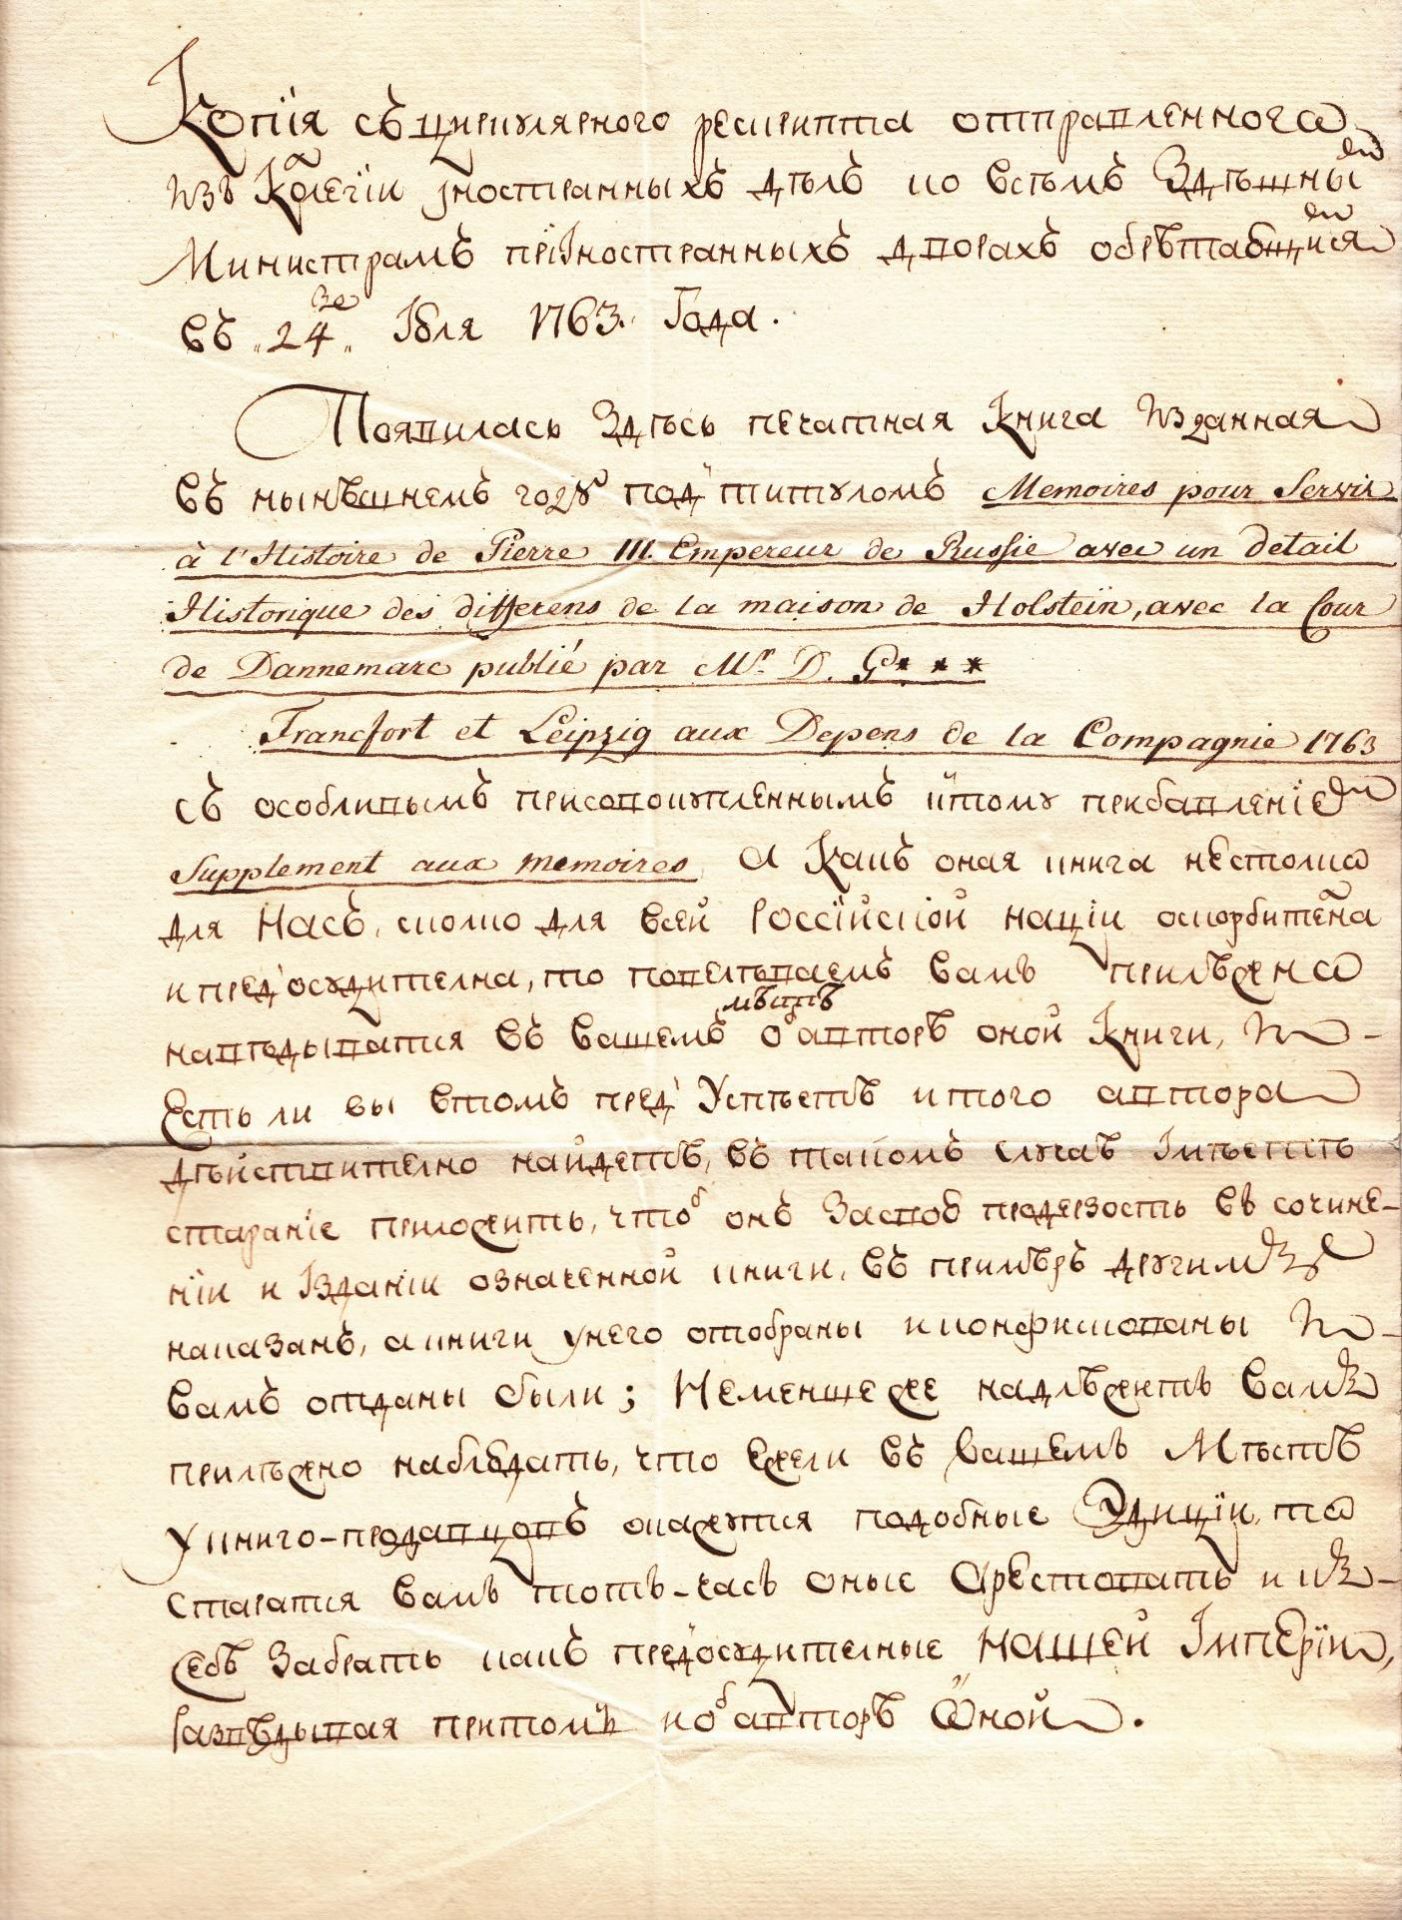 Копїя съ циркулярного рескрипта отправленного
изъ Колегїи Iностранныхъ дѣлъ ко всѣмъ Здѣшнымъ
Министрамъ при Iностранныхъ дворахъ обрѣтающимся
въ „24го„ Iюля 1763. Года.
Появилась Здѣсь печатная Книга Изданная
въ нынѣшнемъ году под титуломъ Memoires pour Servir
à l'Histoire de Pierre III. Empereur de Russie avec un detail
Historique des differens de la maison de Holstein, avec la Cour
de Dannemarc publié par Mr. D. G***
Francfort et Leipzig aux Depens de la Compagnie 1763
съ особливымъ присовокупленнымъ ктому прибавленіемъ
Supplement aux memoires, А Какъ оная книга нестолко
для Насъ, сколко для всей Россїйской нацїи оскорбителна
и предосудителна, то повелѣваемъ вамъ прилѣжно
навѣдыватся въ вашемъ мѣстѣ об авторѣ оной Книги, И
Естьли вы втомъ пред Успѣетѣ итого автора
дѣйствително найдетѣ, въ такомъ случаѣ Iмѣетѣ
стараніе приложить, чтоб онъ Заевою продерзость въ сочине-
нїи и Iзданїи означенной книги, въ примѣръ другимъ
наказанъ, акниги унего отобраны иконфискованы И
вамъ отданы были; Неменшеже надлѣжитъ вамъ
прилѣжно наблюдать, что Ежели въ вашемъ Мѣстѣ
укниго-продавцовъ окажутся подобные Эдицїи, то
старатся вамъ тотъ-часъ оные Арестовать и къ
себѣ Забрать какъ предосудителные Нашей Iмперїи,
Развѣдывая притомъ иоб авторѣ Оной.